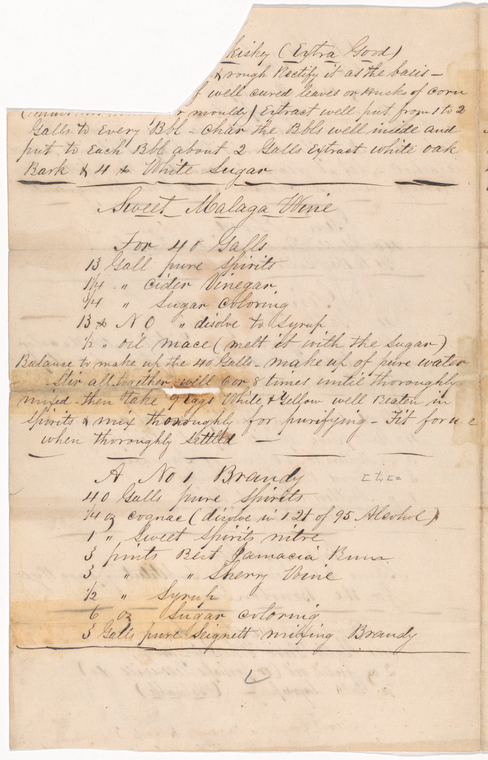 hiskey (Extra Good)
& rough Rectify it as the basis —
f well cured leaves or Husks of corn
mouldy) Extract well put from 1 to 2
Galls to every Bbl — Char the Bbls well inside and
put to Each Bbl about 2 Galls Extract white oak
Bark & 4 lb White Sugar
Sweet Malaga Wine
For 40 Galls
13 Gall pure spirits
1/4 " cider Vinegar
3/4 " Sugar coloring
13 lb NO " disolve to syrup
1/2 " oil mace (melt it with the sugar)
Balance to make up the 40 Galls — make up of pure water
Stir all together well 6 or 8 times until thoroughly
mixed — then take 9 Eggs White & Yellow well Beaten in
spirits & mix thoroughly for purifying — Fit for use
when thoroughly settled —
A No 1 Brandy
40 Galls pure spirits
1/4 oz cognac (disolve in 1 qt of 95 Alcohol)
1 " Sweet Spirits nitre
3 pints Best Jamacia Rum
3 " " Sherry Wine
1/2 " Syrup
6 oz Sugar coloring
5 Galls pure Seignett mixing Brandy